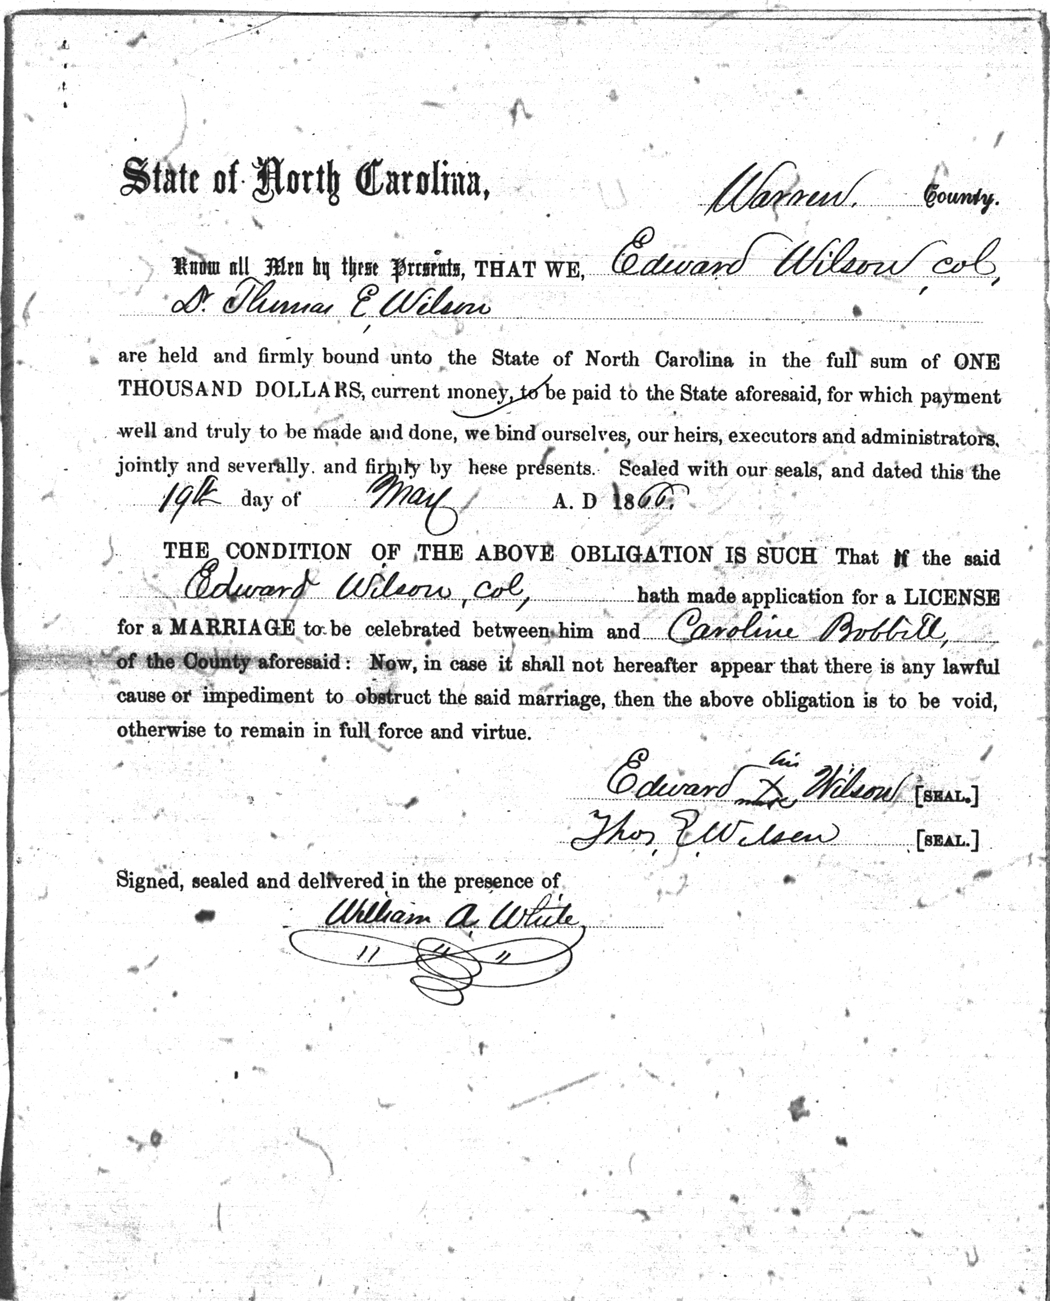 State of North Carolina, Warren. County.
Know all Men by these Presents, THAT WE, Edward Wilson, col,
Dr. Thomas E, Wilson
are held and firmly bound unto the State of North Carolina in the full sum of ONE
THOUSAND DOLLARS, current money, to be paid to the State aforesaid, for which payment
well and truly to be made and done, we bind ourselves, our heirs, executors and administrators,
jointly and severally. and firmly by hese presents. Sealed with our seals, and dated this the
19th day of May A. D 1866.
THE CONDITION OF THE ABOVE OBLIGATION IS SUCH That if the said
Edward Wilson, col, hath made application for a LICENSE
for a MARRIAGE to be celebrated between him and Caroline Bobbitt,
of the County aforesaid: Now, in case it shall not hereafter appear that there is any lawful
cause or impediment to obstruct the said marriage, then the above obligation is to be void,
otherwise to remain in full force and virtue.
his
Edward X Wilson [SEAL.]
mark
Thos, E Wilson [SEAL.]
Signed, sealed and delivered in the presence of
William A. White